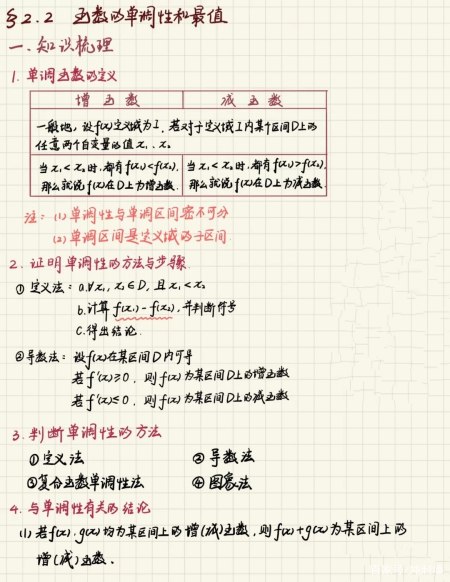 §2.2 函数的单调性和最值
一、知识梳理
1. 单调函数的定义
增函数 减函数
一般地，设f(x)定义域为I，若对于定义域I内某个区间D上的
任意两个自变量的值x₁、x₂
当x₁<x₂时，都有f(x₁)<f(x₂)， 当x₁<x₂时，都有f(x₁)>f(x₂)，
那么就说f(x)在D上为增函数 那么就说f(x)在D上为减函数
注：(1) 单调性与单调区间密不可分
(2) 单调区间是定义域的子区间
2. 证明单调性的方法与步骤
① 定义法：a.∀x₁，x₂∈D，且x₁<x₂
b.计算f(x₁)-f(x₂)，并判断符号
C.得出结论.
②导数法：设f(x)在某区间D内可导
若f'(x)≥0，则f(x)为某区间D上的增函数
若f'(x)≤0，则f(x)为某区间D上的减函数
3. 判断单调性的方法
①定义法 ②导数法
③复合函数单调性法 ④图象法
4. 与单调性有关的结论
(1) 若f(x)，g(x)均为某区间上的增(减)函数，则f(x)+g(x)为某区间上的
增(减)函数。